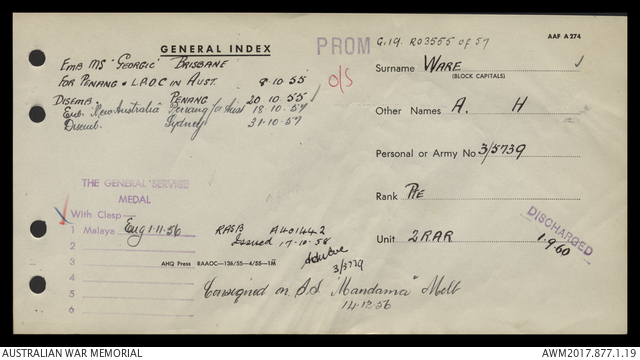 GENERAL INDEX
PROM
G.19. RO3555 OF 57
AAF A274
EMB MS "GEORGIC" BRISBANE
FOR PENANG + L.P.O.C IN AUST. 8·10·55
O/S
DISEMB. PENANG 20·10·55
Emb. New Australia Penang for Aust 18·10·57
Disemb. Sydney 31·10·57
Surname WARE
(BLOCK CAPITALS)
Other Names A. H
Personal or Army No 3/5739
Rank PTE
Unit 2RAR
DISCHARGED
1·9·60
THE GENERAL SERVICE
MEDAL
With Clasp—
1 Malaya Eng 1·11·56
2
3
4
5
6
RASB A401442
Issued 17·10·58
3/3779
AHQ Press RAAOC—136/55—4/55—1M
Consigned on S.S "Mandama" Melb
14·12·56
AUSTRALIAN WAR MEMORIAL
AWM2017.877.1.19